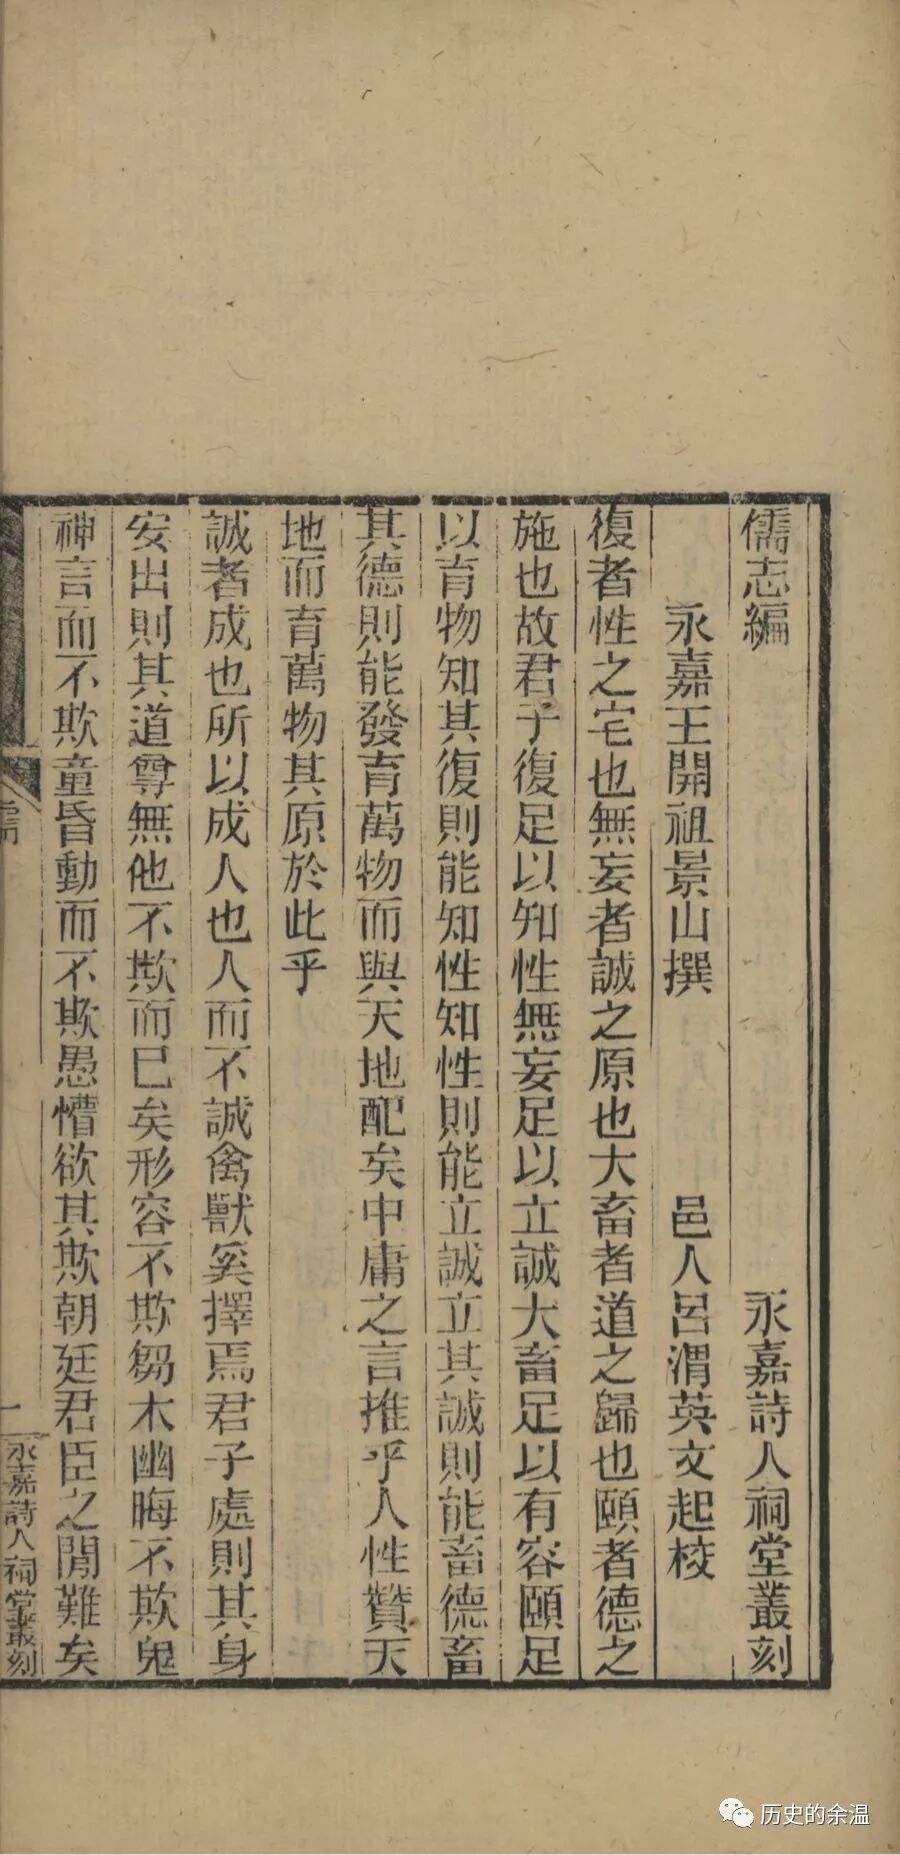 儒志編 永嘉詩人祠堂叢刻
永嘉王開祖景山撰 邑人呂渭英文起校
復者性之宅也無妄者誠之原也大畜者道之歸也頤者德之
施也故君子復足以知性無妄足以立誠大畜足以有容頤足
以育物知其復則能知性知性則能立誠立其誠則能畜德畜
其德則能發育萬物而與天地配矣中庸之言推乎人性贊天
地而育萬物其原於此乎
誠者成也所以成人也人而不誠禽獸奚擇焉君子處則其身
安出則其道尊無他不欺而已矣形容不欺芻木幽晦不欺鬼
神言而不欺童昏動而不欺愚懵欲其欺朝廷君臣之閒難矣
一 永嘉詩人祠堂叢刻
历史的余温